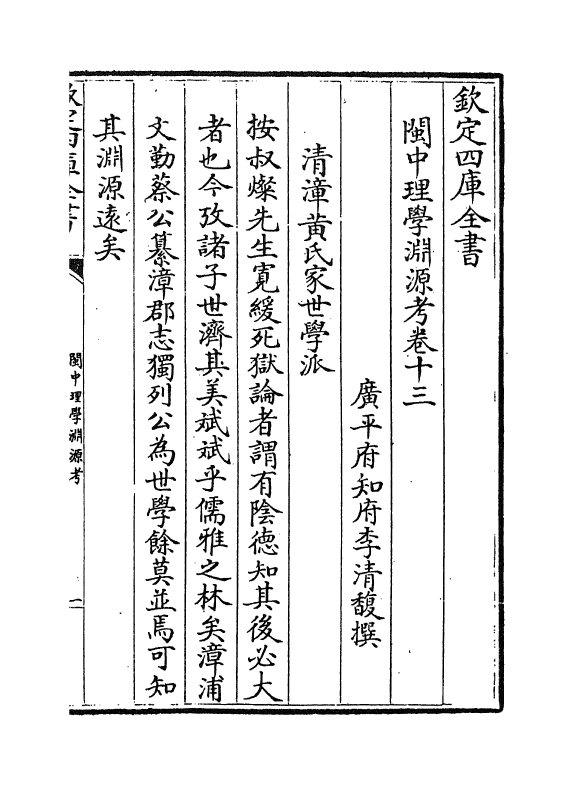 欽定四庫全書
閩中理學淵源考卷十三
廣平府知府李清馥撰
清漳黄氏家世學派
按叔燦先生寛緩死獄論者謂有陰德知其後必大
者也今攷諸子世濟其美斌斌乎儒雅之林矣漳浦
文勤蔡公纂漳郡志獨列公為世學餘莫並焉可知
其淵源逺矣
閩中理學淵源考
一